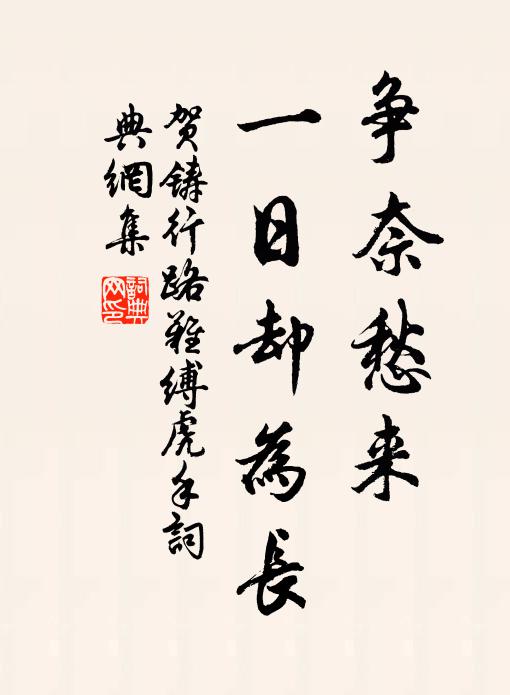 争奈愁来
一日却為長
贺鑄行路難縛虎手詞
典網集
詞典
网印